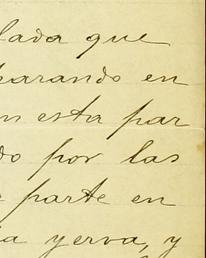 lada que
parando en
n esta par
do por las
e parte en
ia yerva, y